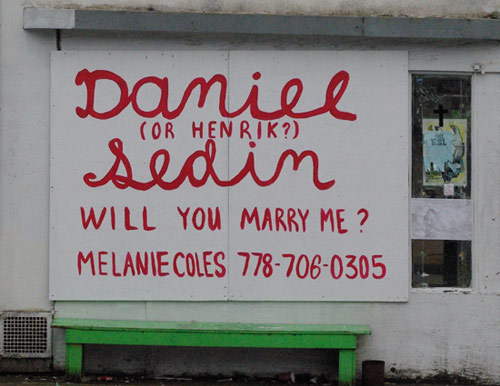 Daniel
(OR HENRIK?)
Sedin
WILL YOU MARRY ME?
MELANIE COLES 778-706-0305